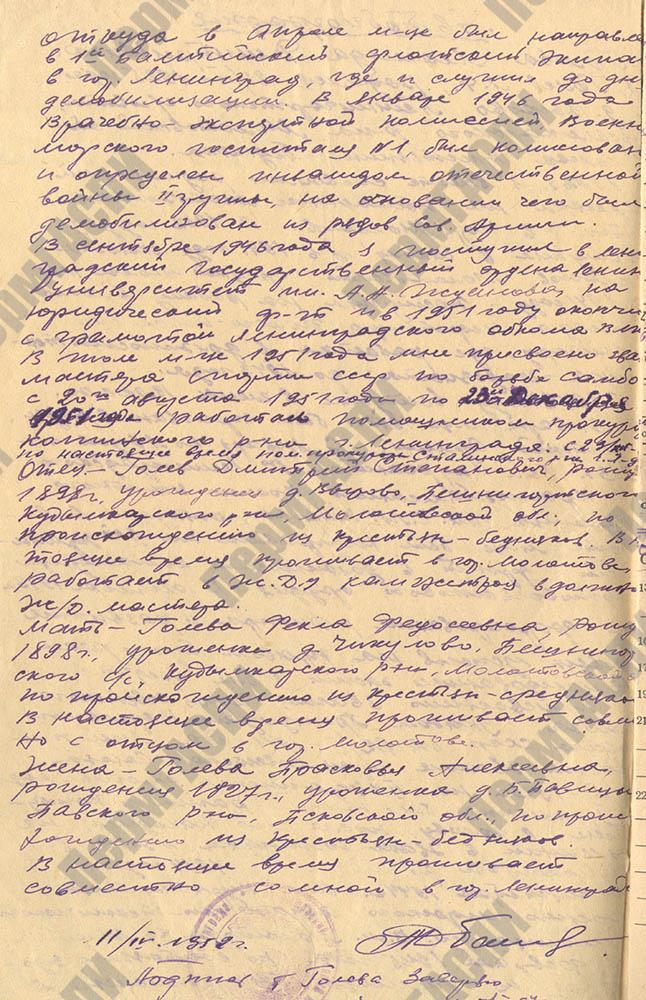 откуда в апреле м-це был направле
в 1й Балтийский флотский экипа
в гор. Ленинград, где и служил до дн
демобилизации. В январе 1946 года
Врачебно-экспертной комиссией Военн
морского госпиталя №1, был комисован
и определен инвалидом отечественной
войны II группы, на основании чего был
демобилизован из рядов Сов. Армии.
В сентябре 1946 года я поступил в Лени
градский Государственный ордена Ленин
университет им. А.А. Жданова на
юридический ф-т и в 1951 году окончи
с грамотой Ленинградского обкома
В м-це 1951 года мне присвоено зва
мастера спорта СССР по борьбе самбо
с 20го августа 1951 года по 29е декабря
1951 года работал помощником прокур
р-на г. Ленинграда. с 29
по настоящее время пом. прокурора р-на
Отец – Голев Дмитрий Степанович, рожд
1898г, уроженец д. Кудымкарского р-на, Молотовской обл., по
происхождению из крестьян-бедняков. В н
тоящее время проживает в гор. Молотове,
работает в должно
ж/д. мастера.
Мать – Голева Фекла Федосеевна, рожд
1898г, уроженка д. Чикулово,
ского с/с, Кудымкарского р-на, Молотовской
по происхождению из крестьян-средняков
В настоящее время проживает совм
но с отцом в гор. Молотове.
Жена – Голева Прасковья Алексеевна,
рождения 1927г., уроженка д.
Павского р-на, Псковской обл., по прои
хождению из крестьян-бедняков.
В настоящее время проживает
совместно со мной в гор. Ленинграде
11/IV-1952г.
Подпись т Голева Заверяю
ПЕРМГАСПИ